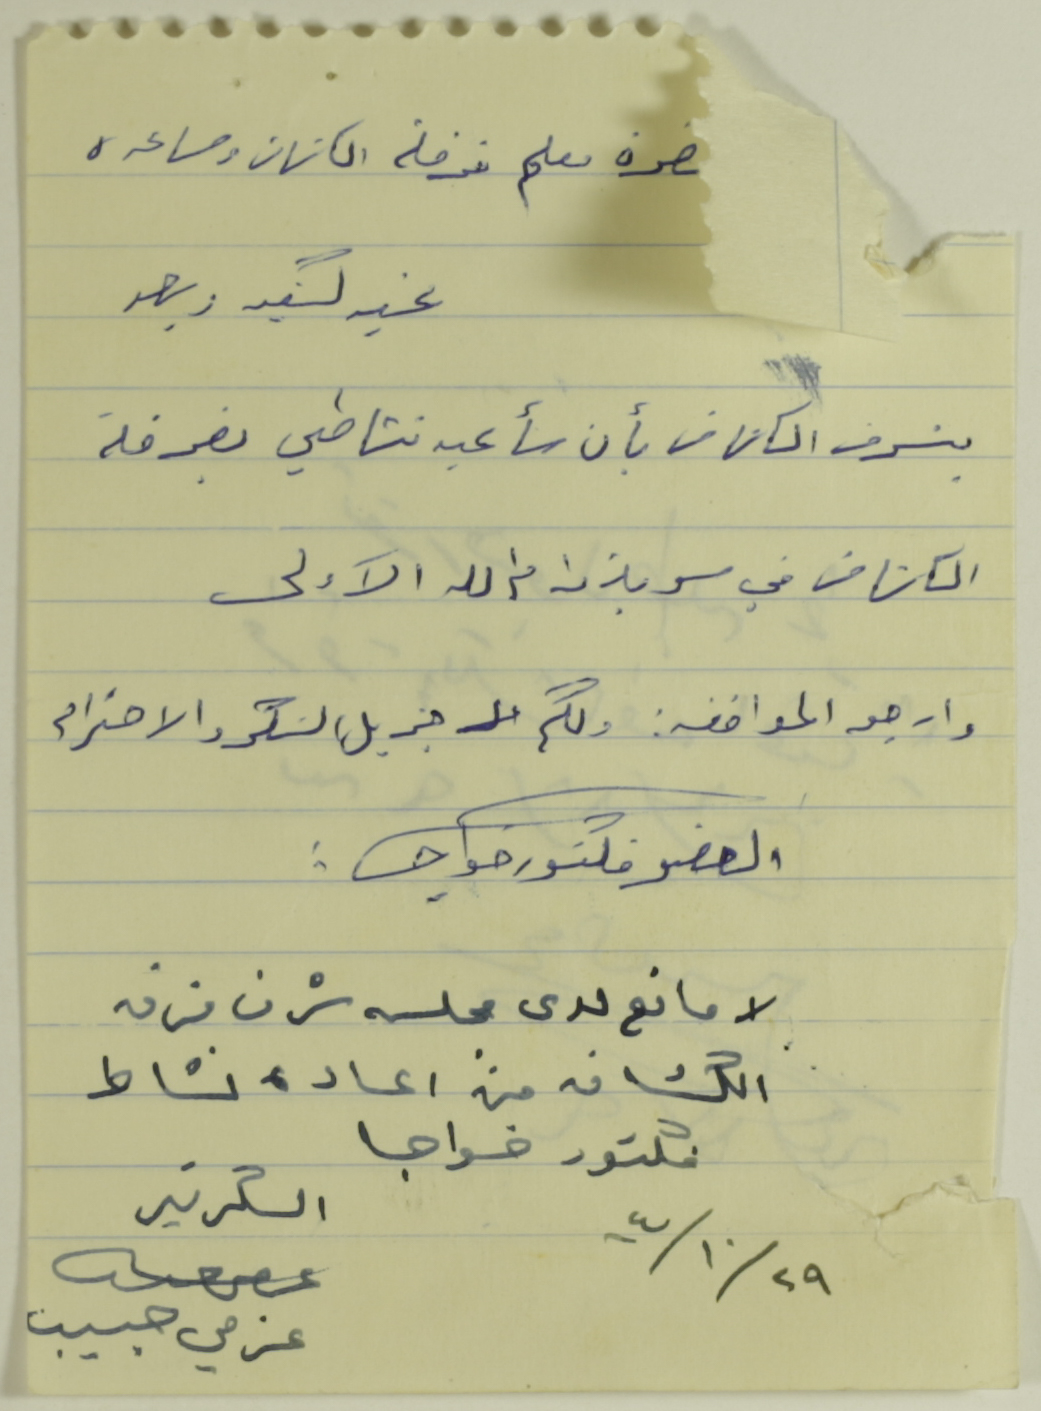 حضرة معلم فرقة الكشاف ومساعده
تحية كشفية وبعد
يتشرف الكشاف بأن سأعيد نشاطي بفرقة
الكشاف في سرية رام الله الأولى
وارجو الموافقة: ولكم جزيل الشكر والاحترام
العضو فكتور خواجا :
لا مانع لدى مجلس شرف فرقة
الكشافه من اعادة نشاط
فكتور خواجا
السكرتير
٢٩/١٠/
عزمي حبيب